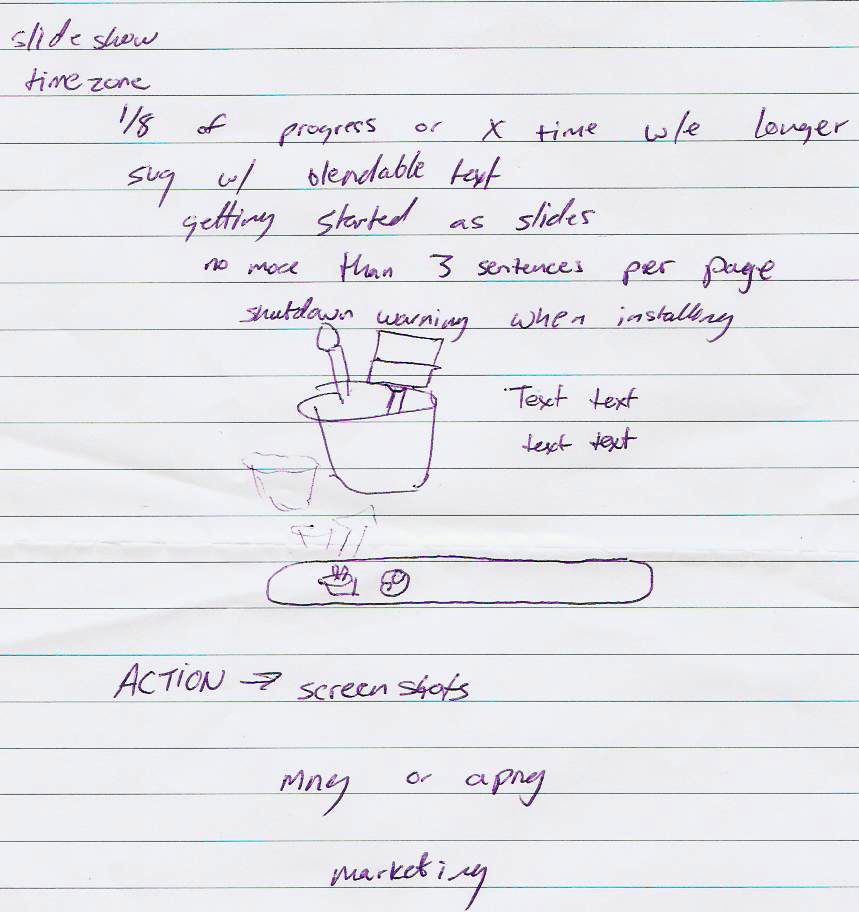 slide show
time zone
1/8 of progress or x time w/e longer
svg w/ blendable text
getting started as slides
no more than 3 sentences per page
shutdown warning when installing
Text text
text text
ACTION → screenshots
mng or apng
marketing